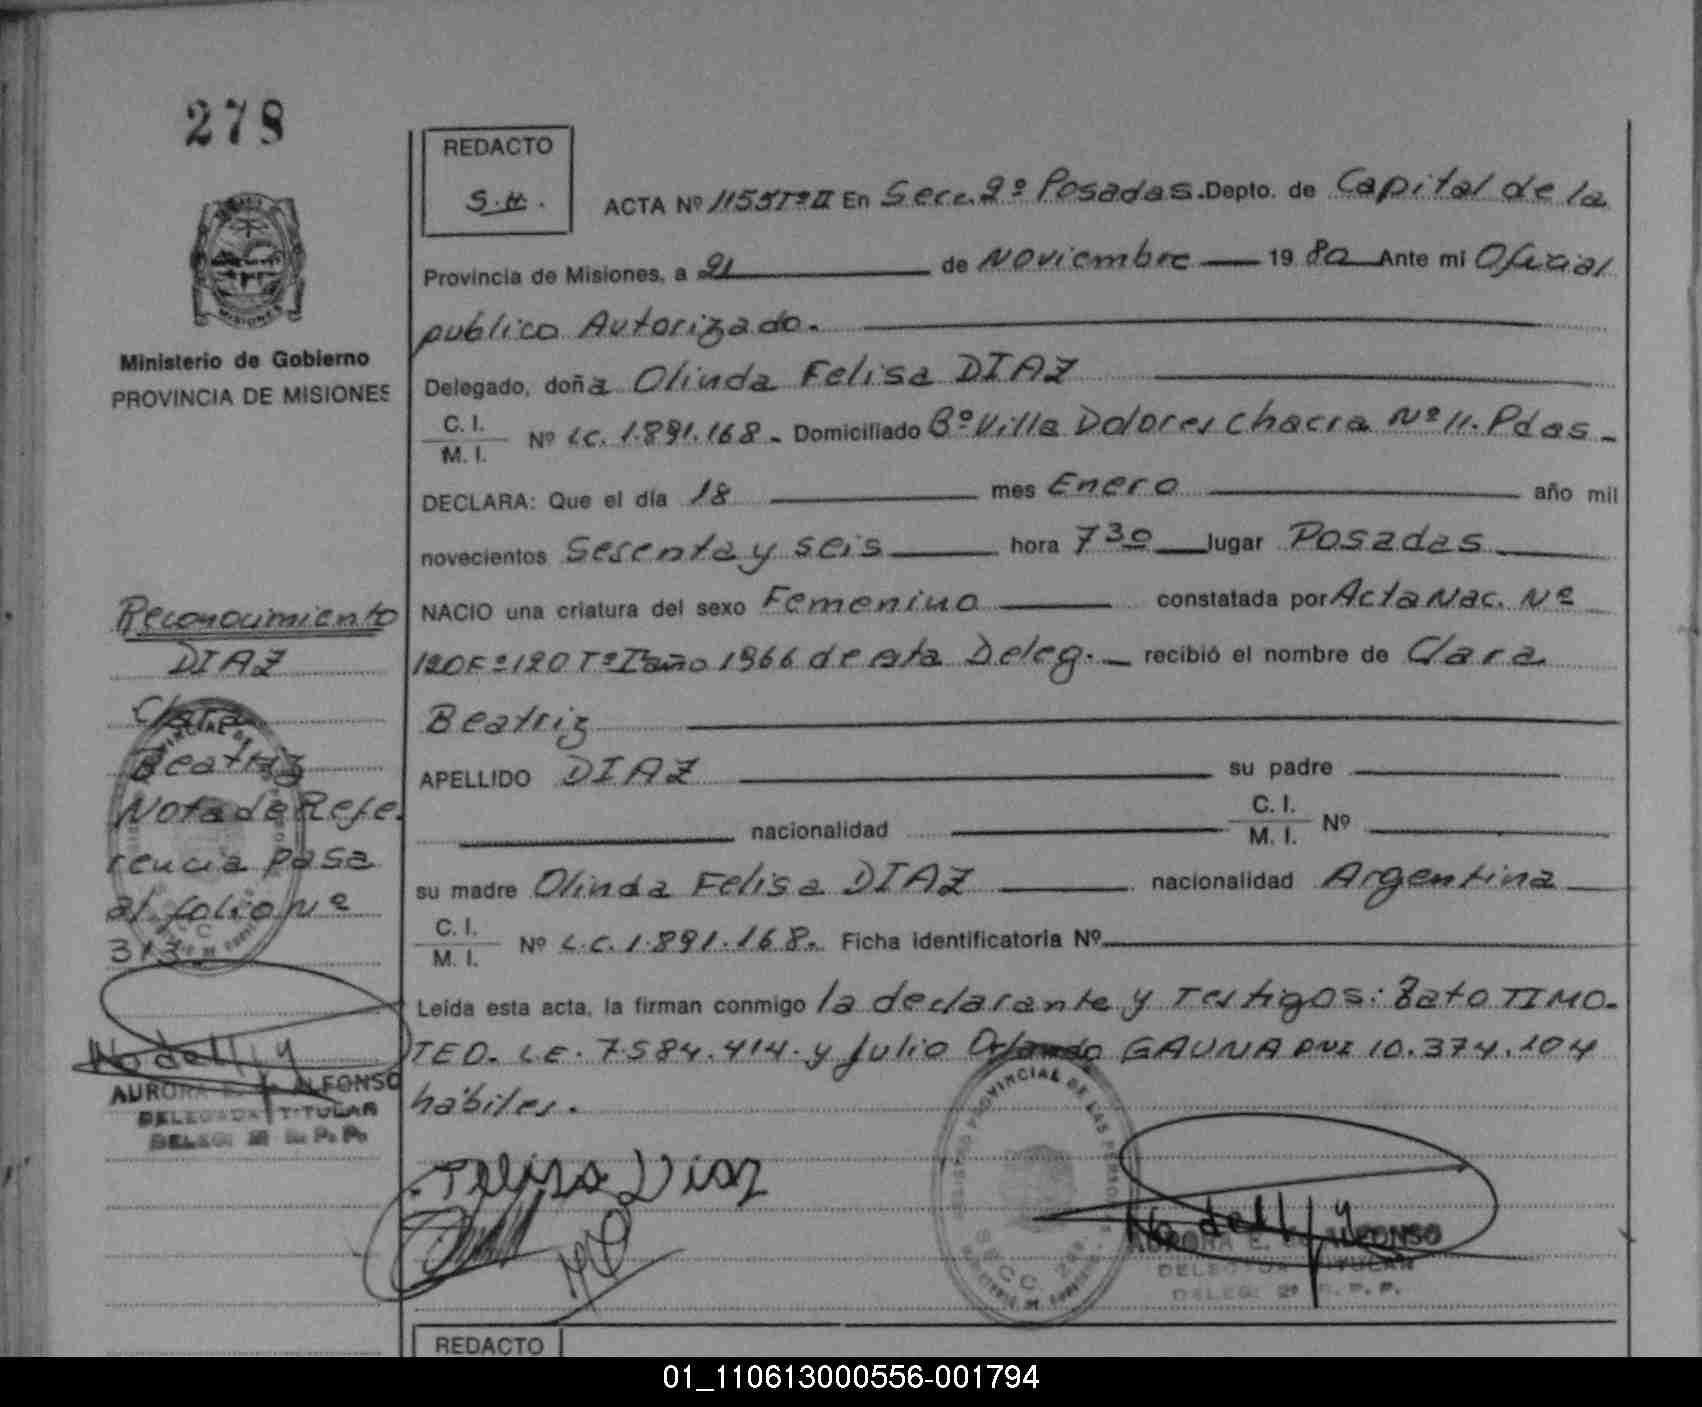 278
REDACTO
S.H.
ACTA Nº 1155 Tº II En Secc. 2º Posadas. Depto. de Capital de la
Provincia de Misiones, a 21 de Noviembre 1980 Ante mi Oficial
publico Autorizado.
MISIONES
Ministerio de Gobierno
PROVINCIA DE MISIONES
Delegado, doña Olinda Felisa DIAZ
C. I.
M. I. Nº L.C. 1.891.168. Domiciliado Bº Villa Dolores Chacra Nº 11. Pdas
DECLARA: Que el día 18 mes Enero año mil
novecientos Sesenta y seis hora 7 30 lugar Posadas
NACIO una criatura del sexo Femenino constatada por Acta Nac. Nº
120 Fº 120 Tº I año 1966 de esta Deleg. recibió el nombre de Clara
Beatriz
APELLIDO DIAZ su padre
nacionalidad C. I.
M. I. Nº
su madre Olinda Felisa DIAZ nacionalidad Argentina
C. I.
M. I. Nº L.C. 1.891.168. Ficha identificatoria Nº
Leída esta acta, la firman conmigo la declarante y Testigos: TIMO-
TEO. L.E. 7584.414. y Julio Orlando GAUNA DNI 10.374.104
habiles.
Reconocimiento
DIAZ
Clara
Beatriz
Nota de Refe.
rencia pasa
al folio Nº
313
AURORA E. ALFONSO
DELEGADA TITULAR
DELEG. 2ª R. P. P.
Felisa Diaz
REGISTRO PROVINCIAL DE LAS PERSONAS
SECC. 2ª
AURORA E. ALFONSO
DELEGADA TITULAR
DELEG. 2ª R. P. P.
REDACTO
01_110613000556-001794